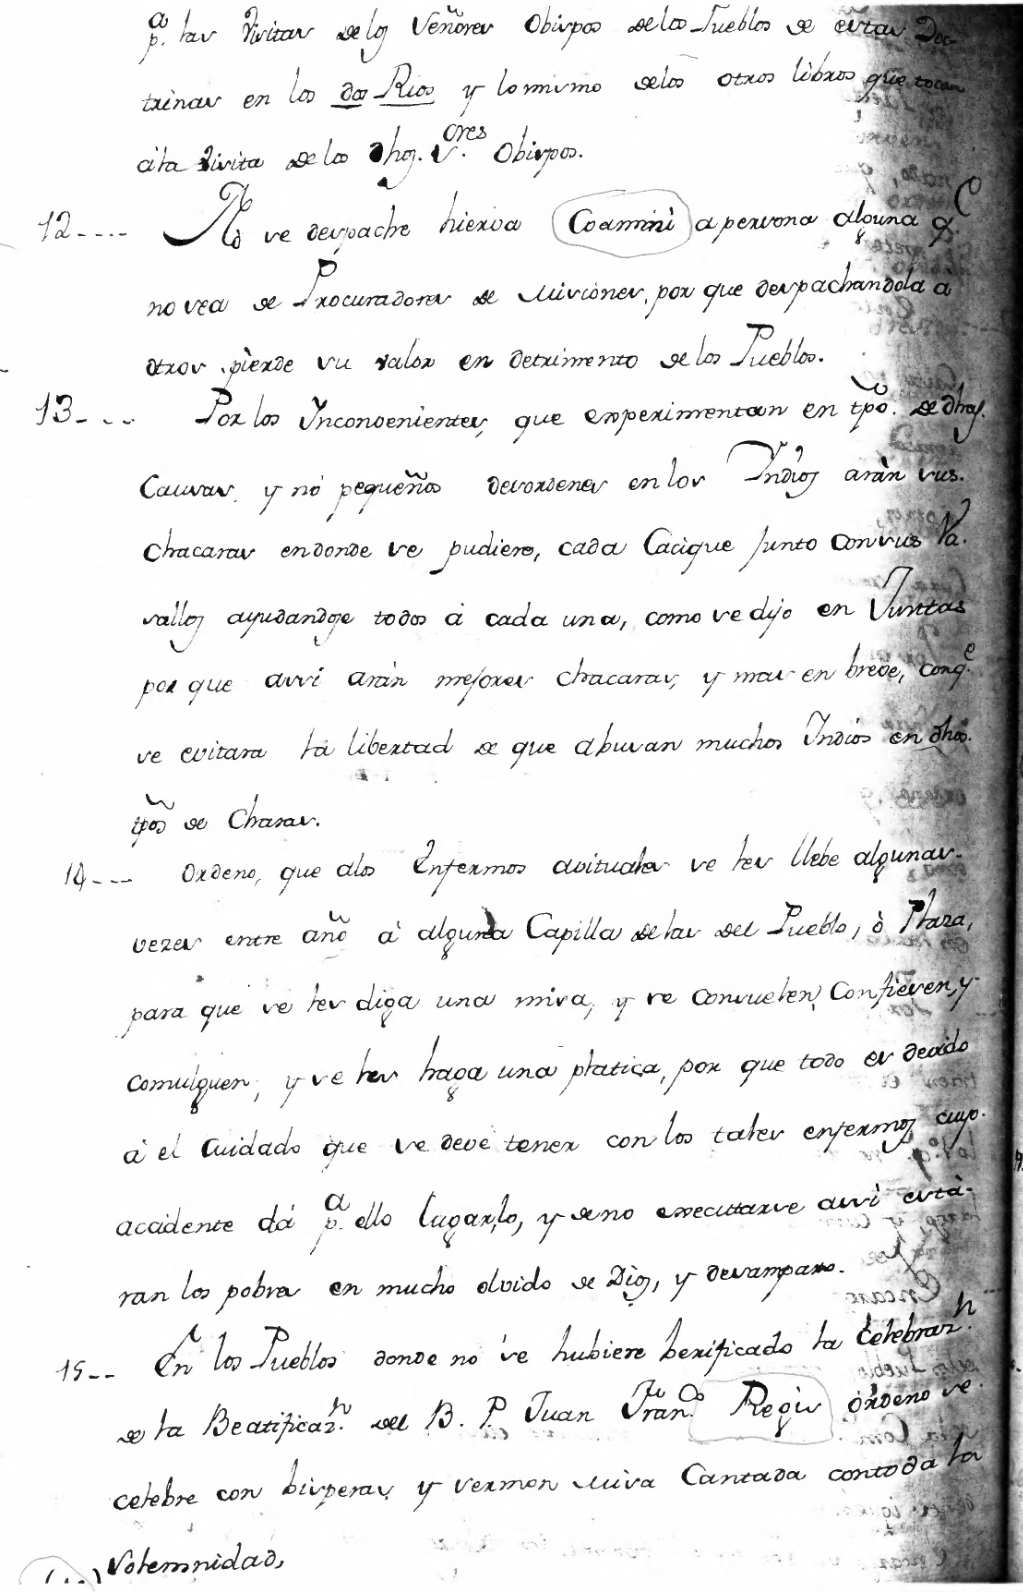 p.ª las Visitas de los Señores Obispos delos Pueblos de estas Doc-
trinas en los dos Rios y lo mismo delos otros libros que tocan
a la Visita de los dhos. S.ores Obispos.
12---- No se despache hierva Caamini a persona alguna q.
no sea de Procuradores de Misiones, por que despachandola a
otros pierde su valor en detrimento de los Pueblos.
13---- Por los Inconvenientes, que experimentan en tpõ. de dhas.
Causas, y nó pequeños desordenes en los Indios aràn sus.
chacaras en donde se pudiere, cada Cacique junto con sus Va.
sallos ayudandose todos á cada una, como se dijo en Juntas
por que assi aràn mejores chacaras, y mas en breve, conq.e
se evitara la libertad de que abusan muchos Indios en dhos.
tpõs de Charas.
14--- Ordeno, que alos Enfermos avituales se les llebe algunas.
vezes entre año à alguna Capilla de las del Pueblo, ò Plaza,
para que se les diga una misa, y se consuelen, Confiesen, y
comulguen, y se les haga una platica, por que todo es devido
à el Cuidado que se deve tener con los tales enfermos cuyo.
accidente dá p.ª ello lugar, y de no executarse assi està-
ran los pobres en mucho olvido de Dios, y desamparo.
15-- En los Pueblos donde no se hubiere berificado la Celebraz.n
de la Beatificaz.n del B. P. Juan Fran.co Regis ordeno se.
celebre con bisperas, y sermon Misa Cantada con toda la
Solemnidad,